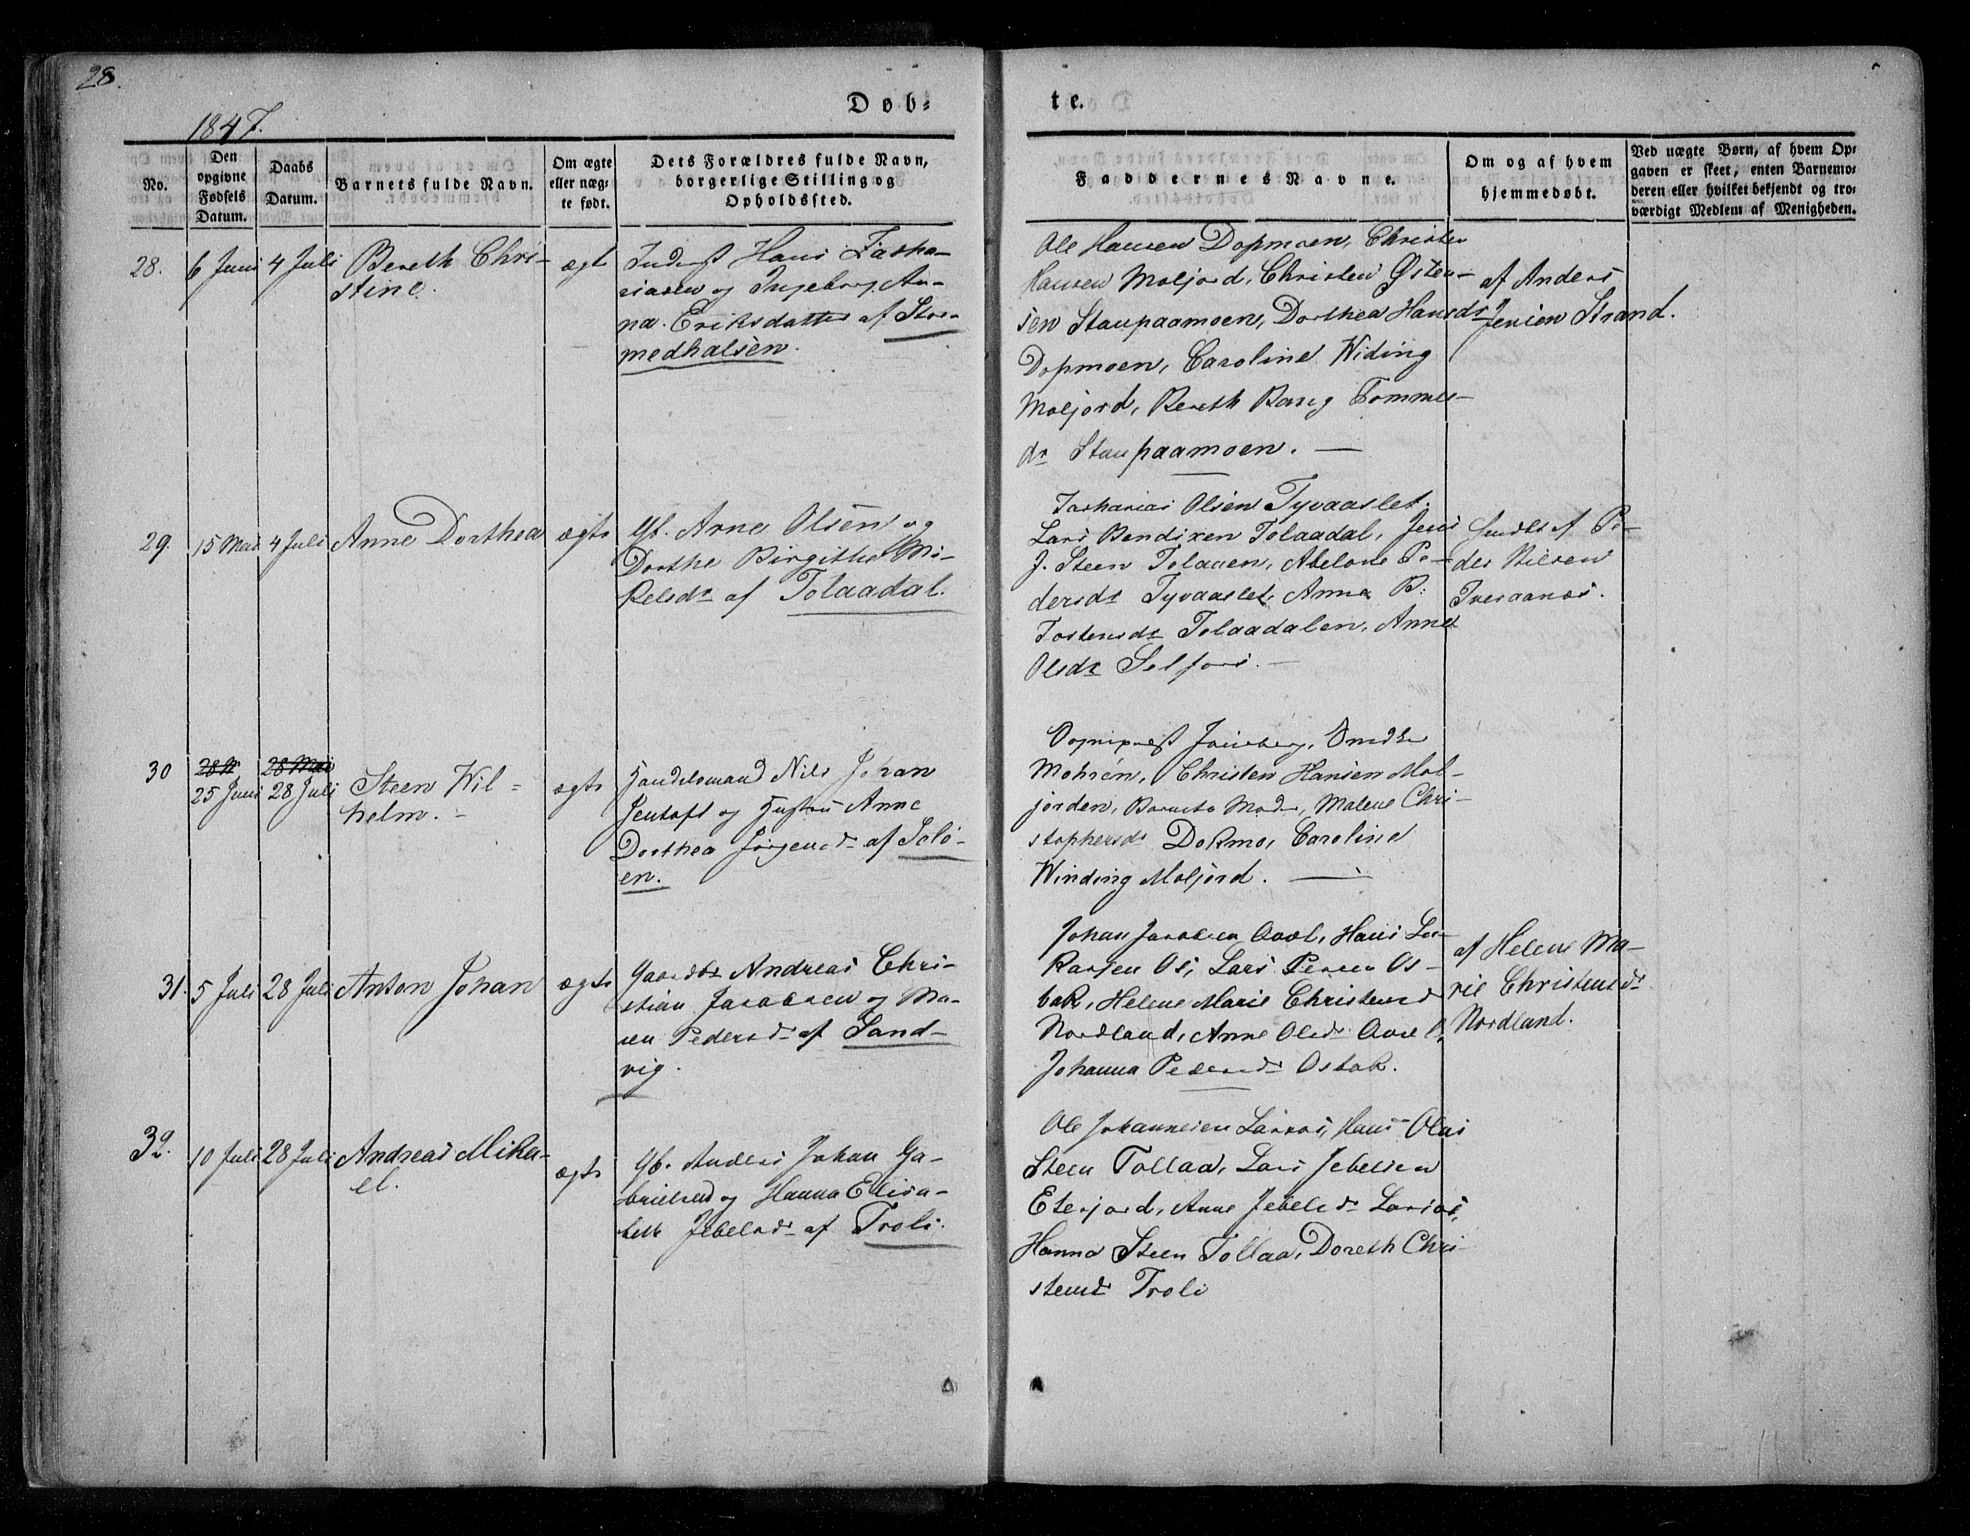 28.
1847.
Døb-
te.
No.
Den
opgivne
Fødsels
Datum.
Daabs
Datum.
Barnets fulde Navn.
Om ægte
eller næg-
te født.
Dets Forældres fulde Navn,
borgerlige Stilling og
Opholdssted.
Faddernes Navne.
Om og af hvem
hjemmedøbt.
Ved uægte Børn, af hvem Op-
gaven er skeet, enten Barnemo-
deren eller hvilket bekjendt og tro-
værdigt Medlem af Menigheden.
28.
6 Juni
4 Juli
Bereth Chri-
stine.
ægte
Inderst Hans Zacha-
riasen og Ingeborg An-
na Eriksdatter af Stor-
medhalsen.
Ole Hansen Dopmoen, Christen
Hansen Moljord, Christen Østen-
sen Staupaamoen, Dorthea Hansdr
Dopmoen, Caroline Widing
Moljord, Bereth Bang Tommes-
dr Staupaamoen.
af Anders
Jensen Strand.
29.
15 Mai
4 Juli
Anne Dorthea
ægte
Gb. Arne Olsen og
Dorthe Birgitha Mi-
kelsdr af Tolaadal.
Zacharias Olsen Tyvaaslet.
Lars Bendixen Tolaadal, Jens
J. Steen Tolaaen, Abelone Pe-
dersdr Tyvaaslet, Anna B.
Tostensdr Tolaadalen, Anne
Olsdr Selfors.
af Pe-
der Nilsen
30
28 Mai
25 Juni
28 Juli
Steen Wil-
helm.
ægte
Handelsmand Nils Johan
Jentoft og Hustru Anne
Dorthea Jørgensdr af Solø-
en.
Mohsen, Christen Hansen Mol-
jorden, Barnets Moder, Malene Chri-
stophersdr Dokmo, Caroline
Winding Moljord.
31.
5 Juli
28 Juli
Anton Johan
ægte
Gaardbr Andreas Chri-
stian Jacobsen og Ma-
ren Pedersdr af Sand-
vig.
Johan Jacobsen Hans La-
Os, Lars Os-
bak, Helene Marie Christensdr
Nordland, Anne Olsdr
Johanna Pedersdr Osbak.
af Helene Ma-
rie Christensdr
Nordland.
32.
10 Juli
28 Juli
Andreas Mika-
el.
ægte
Gb. Anders Johan Ga-
brielsen og Hanna Elisa-
beth Jebelsdr af Troli.
Ole Johannesen Larsos, Hans Olai
Steen Tollaa, Lars Jebelsen
Eterjord, Anne Jebelsdr Larsos,
Hanna Steen Tollaa, Doreth Chri-
stensdr Troli